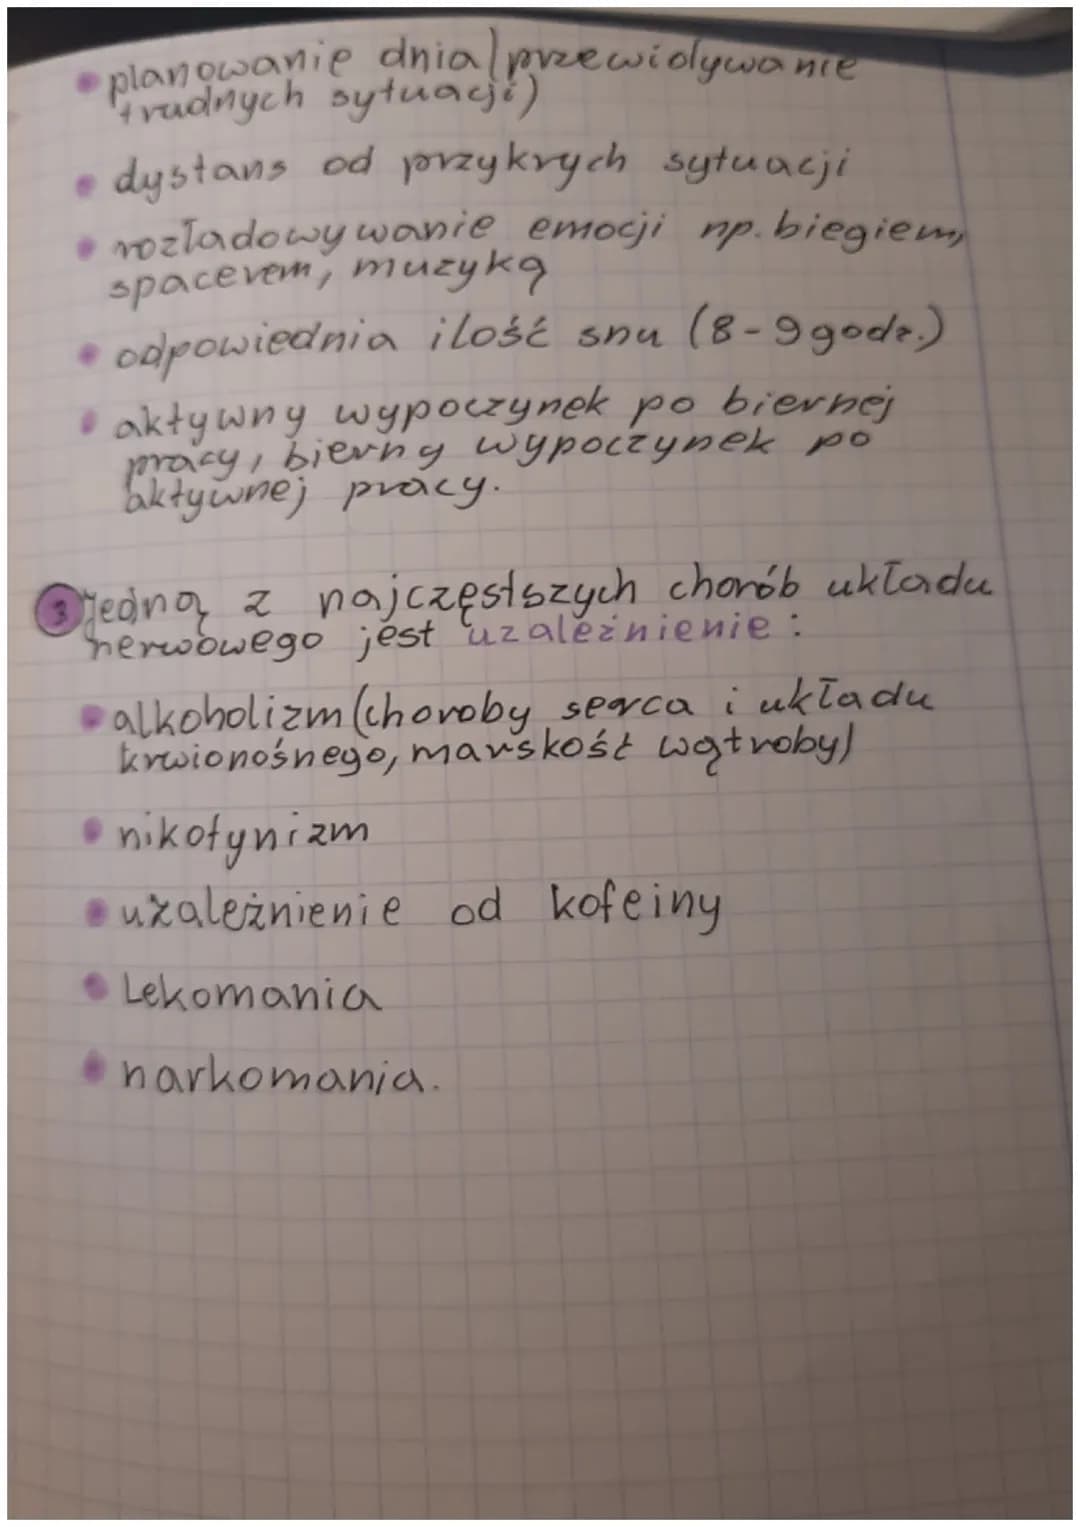 • planowanie dnia (przewidywanie
trudnych sytuacji)
• dystans od przykrych sytuacji
• rozładowywanie emocji np. biegiem,
spacerem, muzyką
• odpowiednia ilość snu (8-9 godz.)
• aktywny wypoczynek po biernej
pracy, bierny wypoczynek po
aktywnej pracy.
3 Jedną z najczęstszych chorób układu
nerwowego jest uzależnienie:
• alkoholizm (choroby serca i układu
krwionośnego, marskość wątroby)
• nikotynizm
• uzależnienie od kofeiny
• Lekomania
• narkomania.